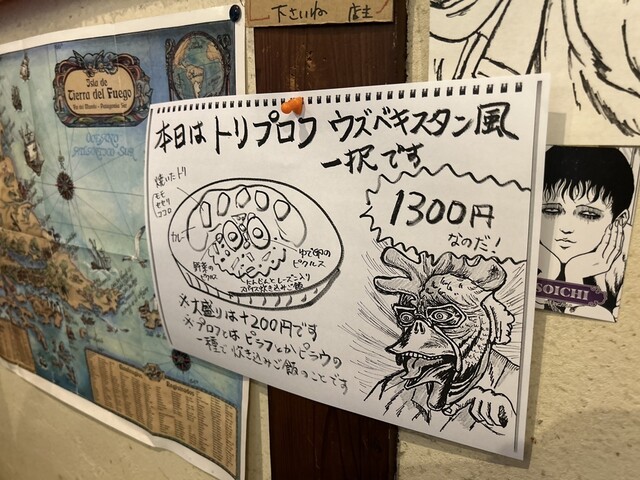 下さいね 店主
Isla de
Tierra del Fuego
本日は トリプロフ ウズベキスタン風
一択です
焼いたトリ
モモ
セセリ
ココロ
カレー
ゆで卵の
ピクルス
野菜の
にんじんとレーズン入り
スパイス炊き込みご飯
1300円
なのだ!
※大盛りは+200円です
※プロフとは ピラフとかピラウの
一種で炊き込みご飯のことです
SOICHI